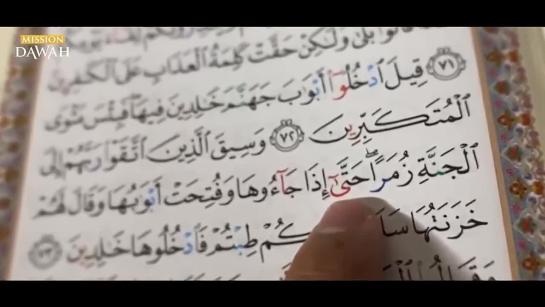 MISSION
DAWAH
قَالُوا۟ بَلَىٰ وَلَٰكِنْ حَقَّتْ كَلِمَةُ ٱلْعَذَابِ عَلَى ٱلْكَٰفِرِينَ
٧١ قِيلَ ٱدْخُلُوٓا۟ أَبْوَٰبَ جَهَنَّمَ خَٰلِدِينَ فِيهَا فَبِئْسَ مَثْوَى
ٱلْمُتَكَبِّرِينَ ٧٢ وَسِيقَ ٱلَّذِينَ ٱتَّقَوْا۟ رَبَّهُمْ إِلَى
ٱلْجَنَّةِ زُمَرًا حَتَّىٰٓ إِذَا جَآءُوهَا وَفُتِحَتْ أَبْوَٰبُهَا وَقَالَ لَهُمْ
خَزَنَتُهَا سَلَٰ كُمْ طِبْتُمْ فَٱدْخُلُوهَا خَٰلِدِينَ ٧٣